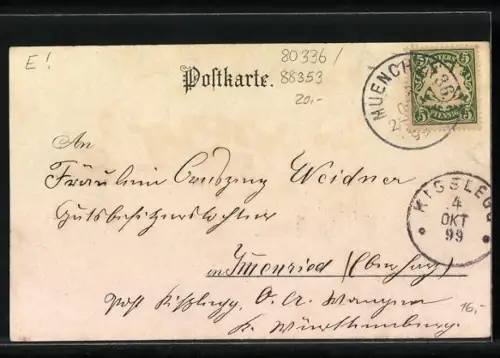 E!
80336/
88353
20,-
Postkarte.
MUENCHEN
BAYERN
5 5
PFENNIG
5 5
KISSLEGG
4
OKT
99
An
Fräulein Weidner
Gutsbesitzerstochter
in Immenried (Oberhof)
Post Kißlegg, O. A. Wangen
K. Württemberg.
16,-